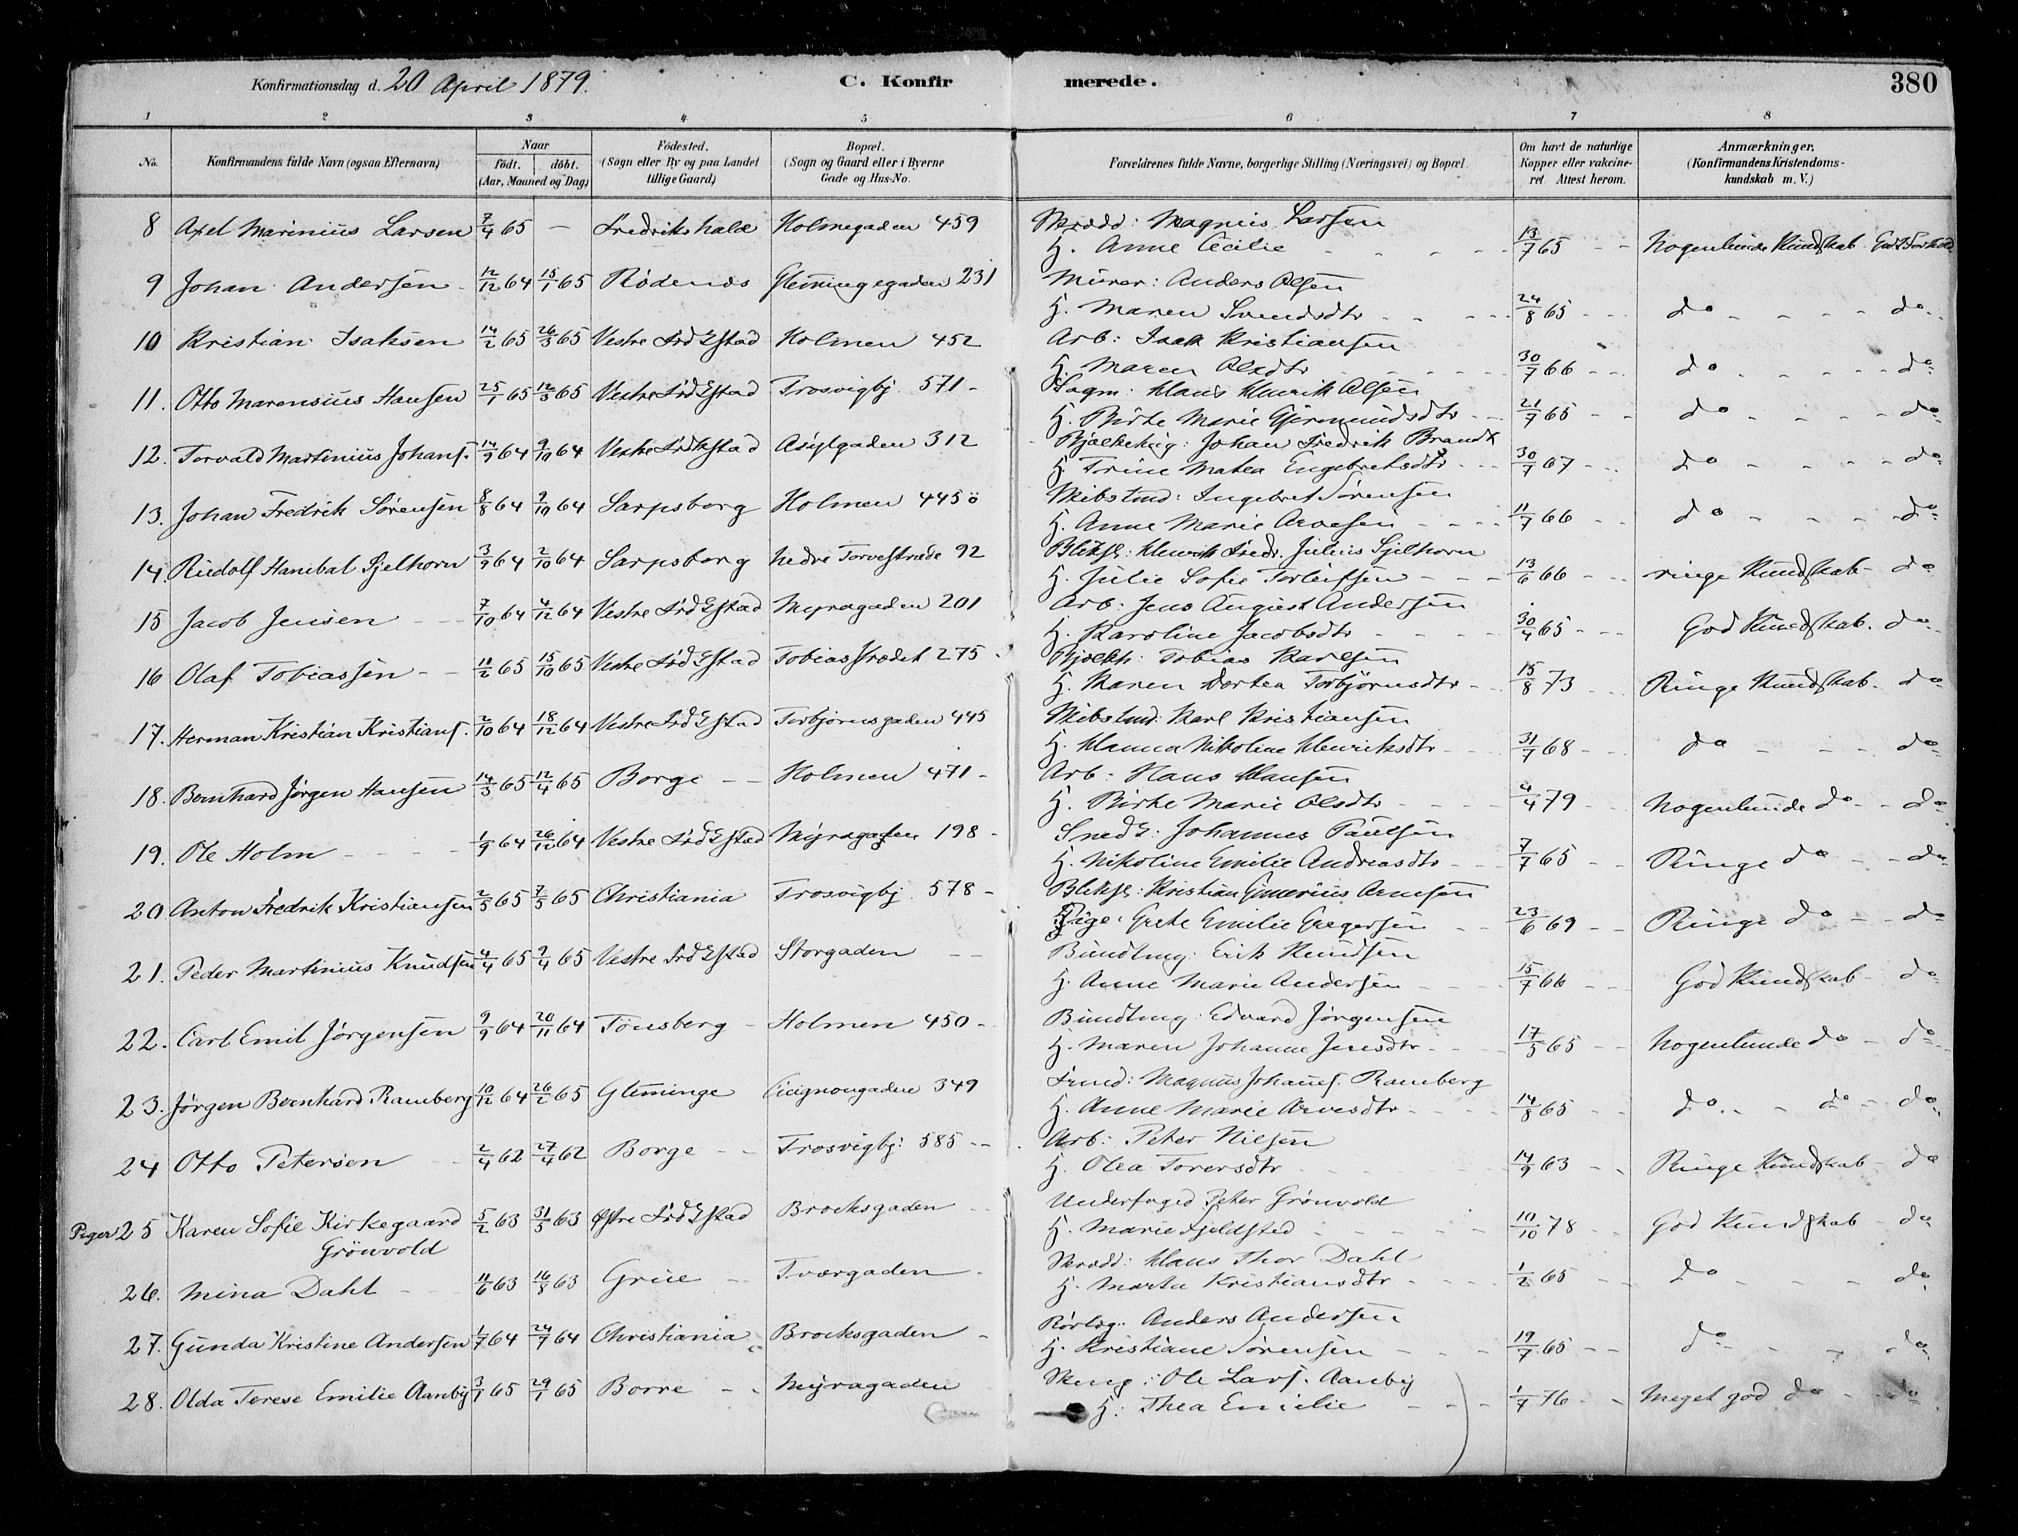 Konfirmationsdag d. 20 April 1879. C. Konfirmerede. 380
1 2 3 4 5 6 7 8
No. Konfirmandens fulde Navn (ogsaa Efternavn) Naar født. døbt. (Aar, Maaned og Dag) Fødested. (Sogn eller By og paa Landet tillige Gaard) Bopæl. (Sogn og Gaard eller i Byerne Gade og Hus-No. Forældrenes fulde Navne, borgerlige Stilling (Næringsvei) og Bopæl. Om havt de naturlige Kopper eller vakcineret Attest herom. Anmærkninger, (Konfirmandens Kristendomskundskab m. V.)
8 Axel Marinius Larsen 7/4 65 — Fredrikshald Holmegaden 459 Skrædd: Magnus Larsen
H. Anne Cecilie 13/7 65 Nogenlunde Kundskab. Godt Forhold
9 Johan Andersen 12/12 64 15/1 65 Rødenæs Glemmingegaden 231 Murer: Anders Olsen
H. Maren Svendsdtr 24/8 65 do do
10 Kristian Isaksen 14/2 65 26/3 65 Vestre Frdkstad Holmen 452 Arb: Isak Kristiansen
H. Maren Olsdtr 30/7 66 do do
11. Otto Marensius Hansen 25/1 65 12/3 65 Vestre Frdkstad Trosvigbj. 571 Sagm: Hans Henrik Olsen
H. Birte Marie Gjermundsdtr 21/7 65 do do
12. Torvald Martinius Johans. 14/9 64 9/10 64 Vestre Frdkstad Asylgaden 312 Johan Fredrik Brandt
H Trine Matea Engebretsdtr 30/7 67 do do
13. Johan Fredrik Sørensen 8/8 64 9/10 64 Sarpsborg Holmen 445 ö Skibstmd: Ingebret Sørensen
H. Anne Marie Arvesen 11/7 66 do do
14. Rudolf Hanibal Sjelhorn 3/9 64 2/10 64 Sarpsborg Nedre Torvestræde 92 Bliksl: Henrik Fredr. Julius Sjelhorn
H. Julie Sofie Torleifsen 13/6 66 ringe Kundskab do
15 Jacob Jensen 7/10 64 4/12 64 Vestre Frdkstad Myragaden 201 Arb: Jens August Andersen
H. Karoline Jacobsdtr 30/4 65 God Kundskab. do
16 Olaf Tobiassen 11/2 65 15/10 65 Vestre Frdkstad Tobiasstrædet 275 Bjælkh: Tobias Karlsen
H. Karen Dortea Torbjørnsdtr 15/8 73 Ringe Kundskab. do
17. Herman Kristian Kristians. 2/10 64 18/12 64 Vestre Frdkstad Torbjørnsgaden 445 Skibstmd: Karl Kristiansen
H. Hanna Nikoline Henriksdtr 31/7 68 do do
18. Bernhard Jørgen Hansen 14/3 65 12/4 65 Borge Holmen 471 Arb: Hans Hansen
H. Birte Marie Olsdtr 4/4 79 Nogenlunde do do
19. Ole Holm 1/9 64 26/12 64 Vestre Frdkstad Myragaden 198 Snedk: Johannes Paulsen
H. Nikoline Emilie Andreasdtr 7/7 65 Ringe do do
20 Anton Fredrik Kristiansen 2/3 65 7/5 65 Christiania Trosvigbj. 578 Bliksl: Kristian Arnesen
Pige: Grete Emilie Gregersen 23/6 69 Ringe do do
21. Peder Martinius Knudsen 4/4 65 9/4 65 Vestre Frdkstad Storgaden Bundtmg: Erik Knudsen
H. Anne Marie Andersen 15/7 66 God Kundskab do
22. Carl Emil Jørgensen 9/9 64 20/11 64 Tønsberg Holmen 450 Bundtmg: Edvard Jørgensen
H. Maren Johanne Jensdtr 17/5 65 Nogenlunde do do
23. Jørgen Bernhard Ramberg 10/12 64 26/2 65 Glemminge Cicignongaden 349 Magnus Johans. Ramberg
H. Anne Marie Arvesdtr 14/8 65 do do do
24 Otto Petersen 2/4 62 27/4 62 Borge Trosvigbj: 585 Arb: Peter Nilsen
H. Olea Torersdtr 14/9 63 Ringe Kundskab do
Piger 25 Karen Sofie Kirkegaard 5/2 63 31/5 63 Østre Frdkstad Brocksgaden Underfoged Peter Grønvold
Grönvold H. Marie Fjeldsted 10/10 78 God Kundskab do
26. Mina Dahl 11/6 63 16/8 63 Grue Tværgaden Skrædd: Hans Thor Dahl
H. Marta Kristiansdtr 1/2 65 do do
27. Gunda Kristine Andersen 1/7 64 24/7 64 Christiania Brocksgaden Rørlæg. Anders Andersen
H. Kristiane Sørensen 19/7 65 do do
28. Olda Terese Emilie Aanby 3/1 65 29/1 65 Borre Myragaden Ole Lars. Aanby
H: Thea Emilie 1/7 76 Meget god do do